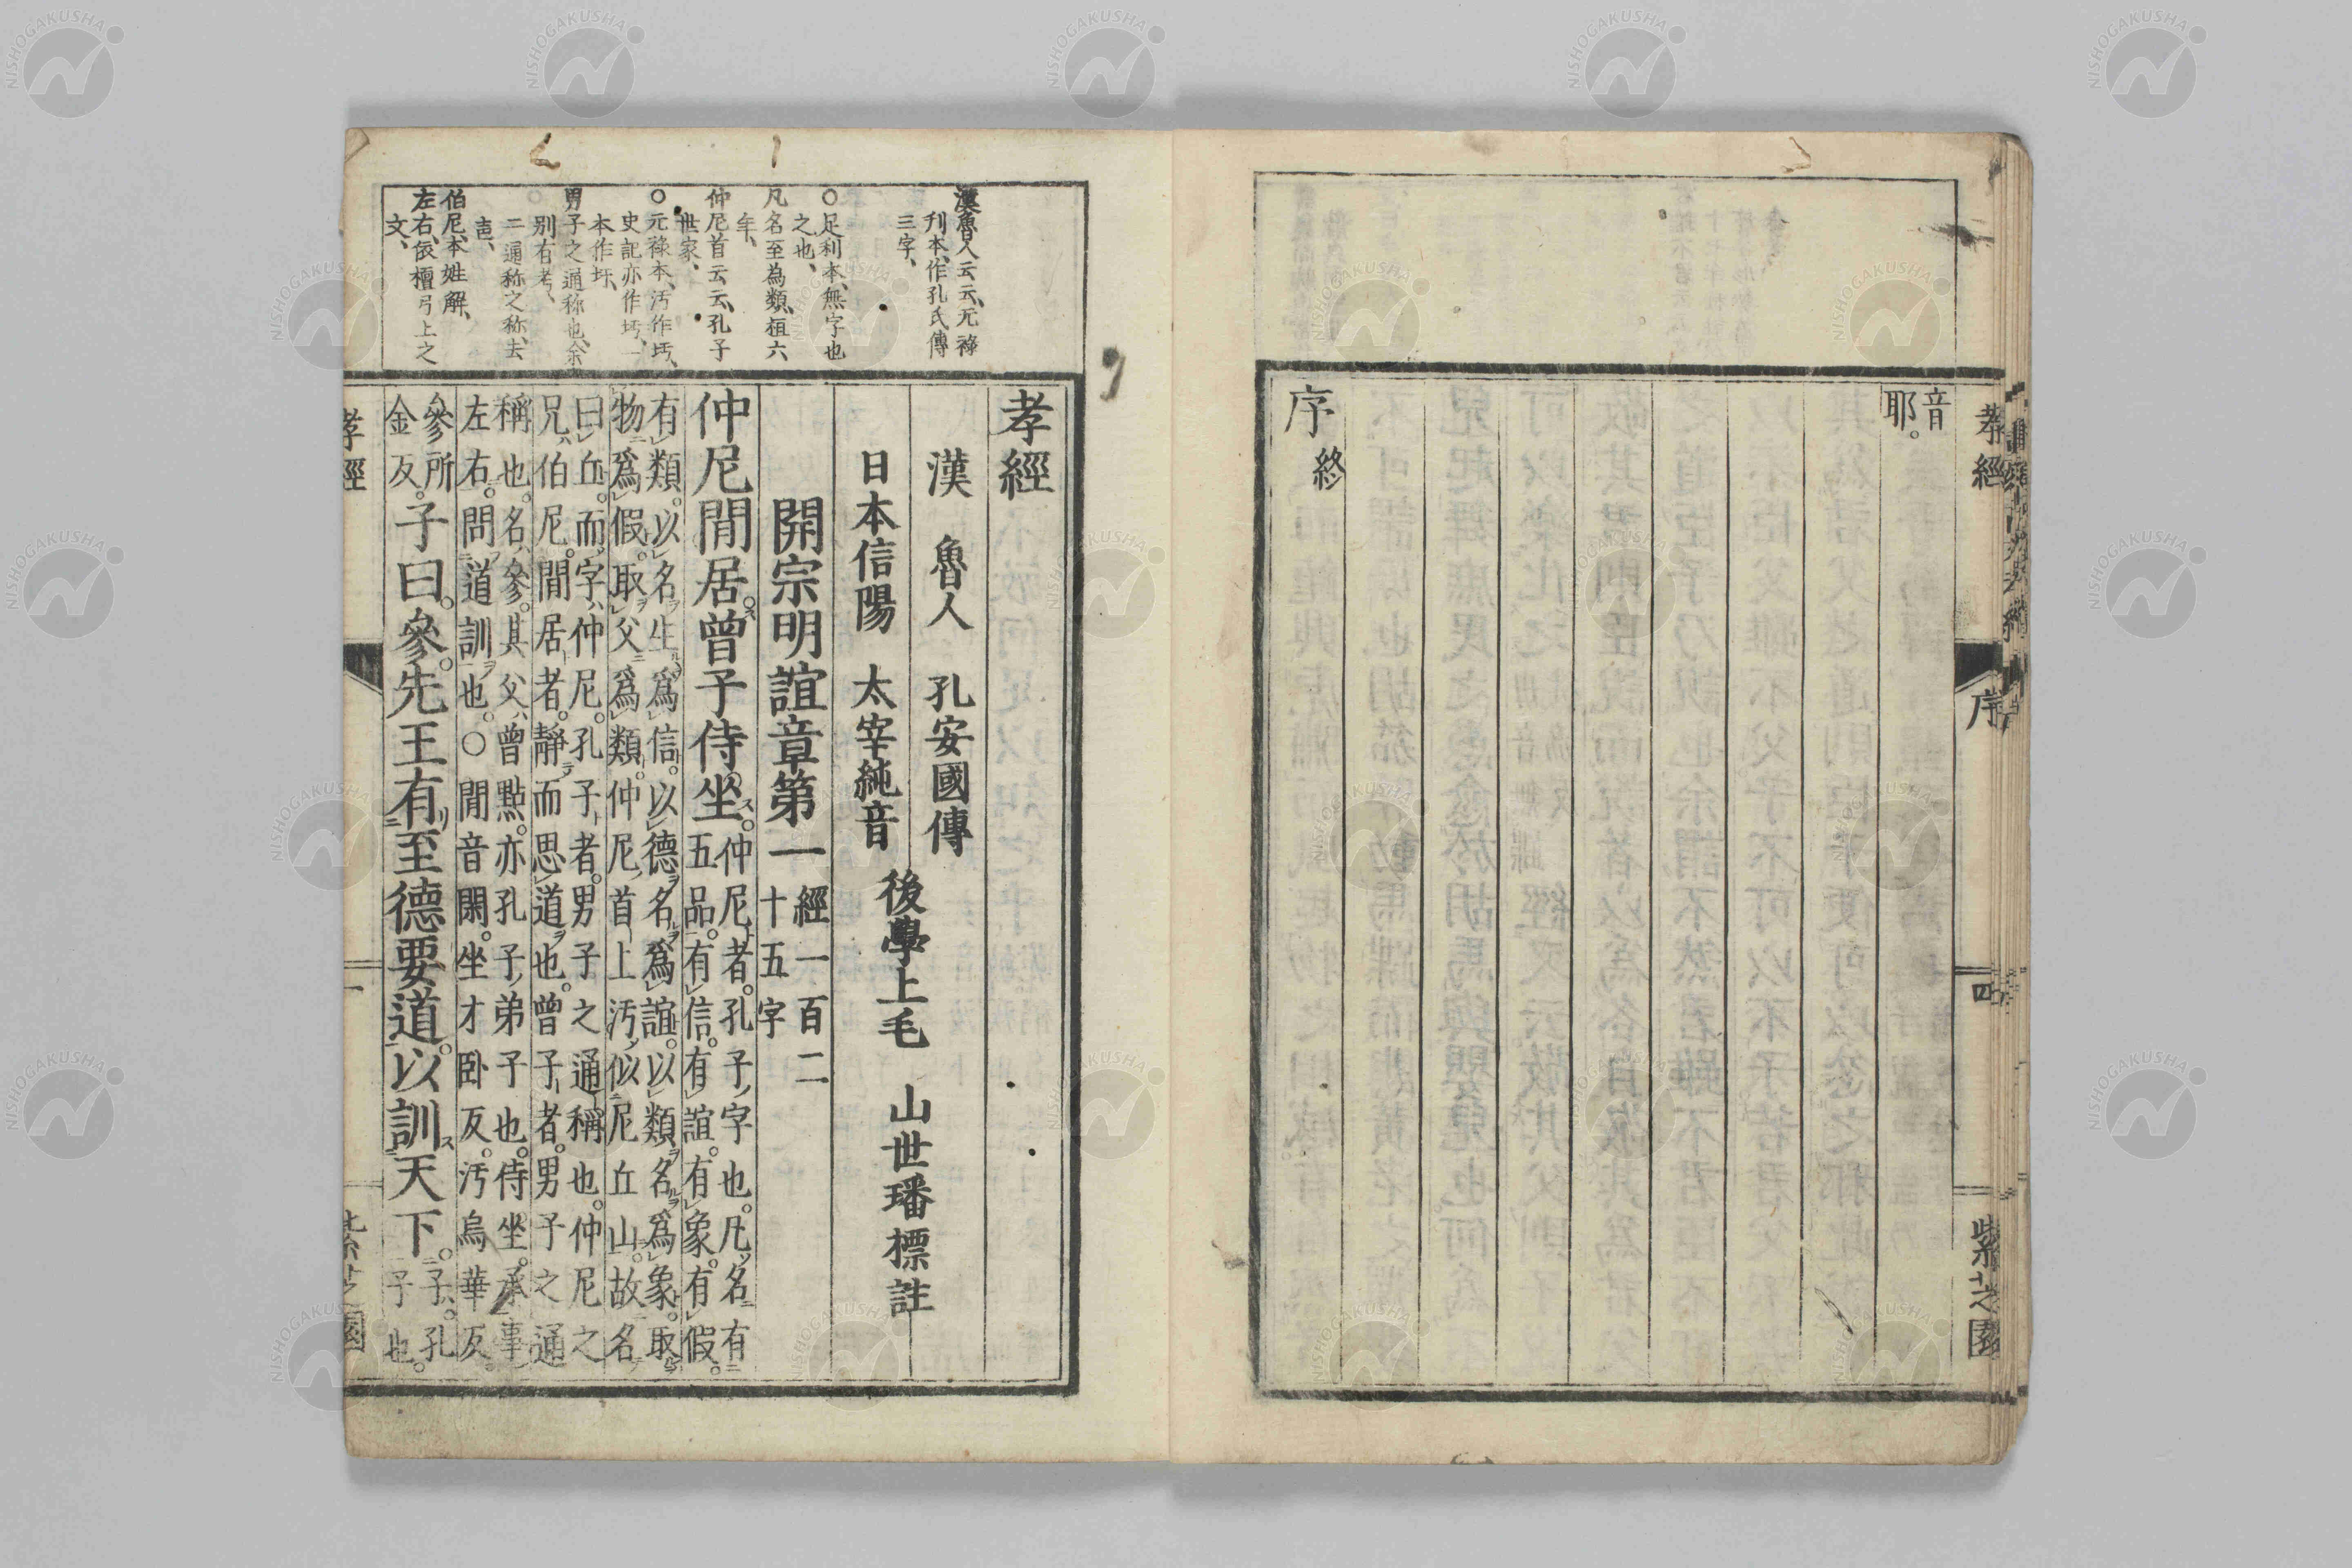 音
耶。
序終
孝經
序
四
紫芝園
漢魯人云云、元祿
刋本、作孔氏傳
三字、
○足利本、無字也
之也、
凡名至為類、桓六
年、
仲尼首云云、孔子
世家、
○元祿本、汚作圬、
史記亦作圬、一
本作圩、
男子之通称也、余
別有考、
二通称之称、去
声、
伯尼、本姓解、
左右、依檀弓上之
文、
孝經
漢 魯人 孔安國傳
日本信陽 太宰純音
後學上毛 山世璠標註
開宗明誼章第一
經一百二
十五字
仲尼閒居。曾子侍坐。
仲尼者。孔子字也。凡名有
五品。有信。有誼。有象。有假。
有類。以名生爲信。以德名爲誼。以類名爲象。取
物爲假。取父爲類。仲尼首上汚似尼丘山。故名
曰丘。而字仲尼。孔子者。男子之通稱也。仲尼之
兄伯尼。閒居者。靜而思道也。曾子者。男子之通
稱也。名參。其父曾點。亦孔子弟子也。侍坐。承事
左右。問道訓也。○閒音閑。坐才卧反。汚烏華反。
參所
金反。
子曰。參。先王有至德要道。以訓天下。
子。孔
子也。
孝經
一
紫芝園
NISHOGAKUSHA